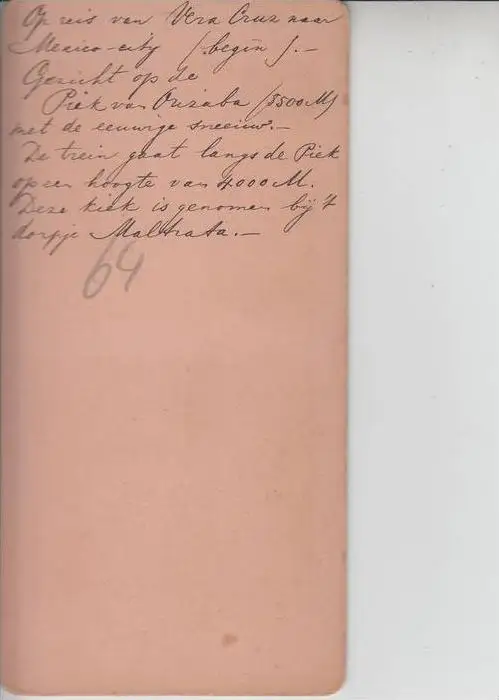 Op reis van Vera Cruz naar
Mexico-city (begin).-
Gezicht op de
Piek van Orizaba (5500M)
met de eeuwige sneeuw.-
De trein gaat langs de Piek
op een hoogte van 4000 M.
Deze kiek is genomen bij 't
dorpje Maltrata.-
64